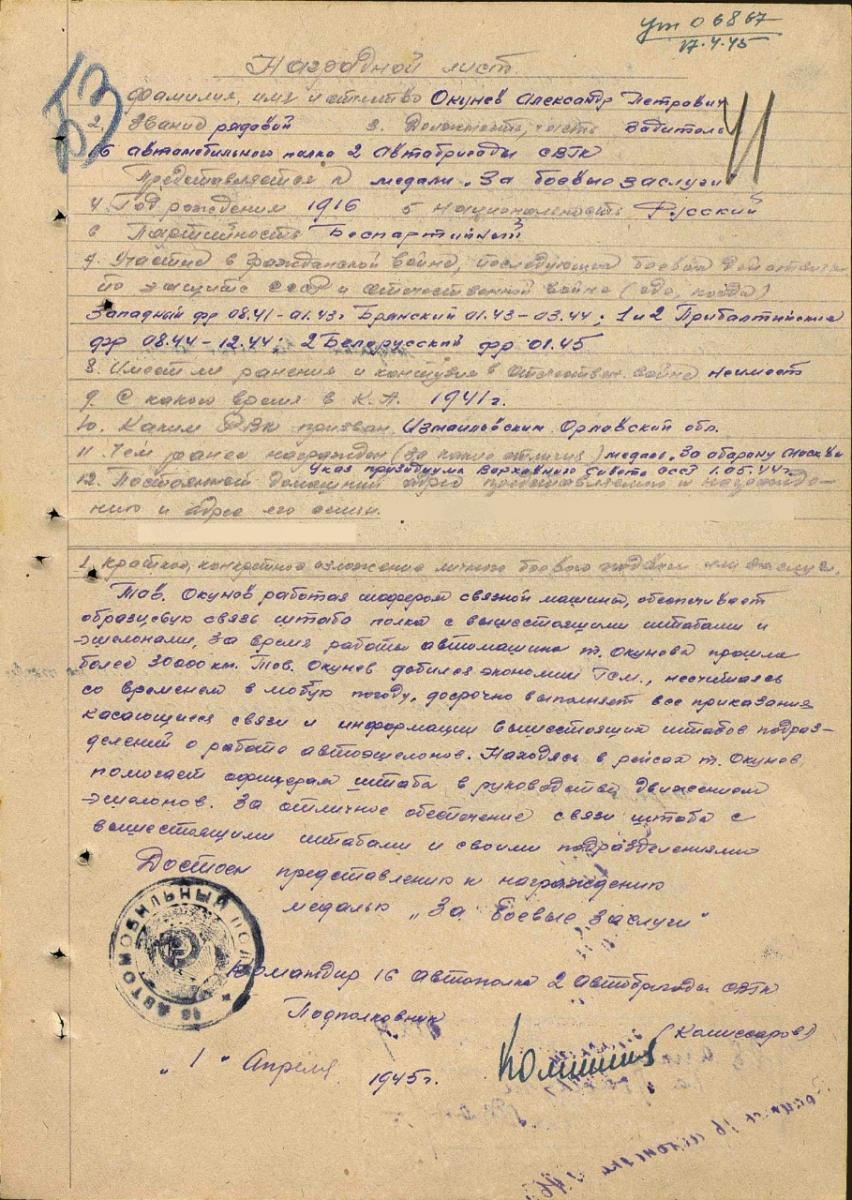 ут 06867
17.4.45
53
Наградной лист
Фамилия, имя и отчество Окунев Александр Петрович
2. Звание рядовой 3. Должность, часть Водитель
16 автомобильного полка 2 Автобригады СВГК
Представляется к медали „За боевые заслуги"
4. Год рождения 1916 5 Национальность Русский
6 Партийность Беспартийный
7. Участие в гражданской войне, последующих боевых действиях
по защите СССР и отечественной войне (где, когда)
Западный фр 08.41-01.43г Брянский 01.43-03.44; 1 и 2 Прибалтийские
фр 08.44-12.44; 2 Белорусский фр 01.45
8. Имеет ли ранения и контузии в отечествен. войне не имеет
9. С какого время в К.А. 1941г.
10. Каким РВК призван Измайловским Орловский обл.
11. Чем ранее награжден (за какие отличия) медаль „За оборону Москвы
Указ президиума Верховного Совета СССР 1.05.44г.
12. Постоянной домашний адрес представляемого к награжде-
нию и адрес его семьи.
1. Краткое, конкретное изложение личного боевого подвига или заслуг.
Тов. Окунев работая шофером связной машины, обеспечивает
образцовую связь штаба полка с вышестоящими штабами и
эшелонами, за время работы автомашина т. Окунева прошла
более 30000 км. Тов. Окунев добился экономии Гсм., несчитаясь
со временем в любую погоду, досрочно выполняет все приказания
касающиеся связи и информации вышестоящих штабов подраз-
делений о работе автоэшелонов. Находясь в рейсах т. Окунев,
помогает офицерам штаба в руководстве движением
эшелонов. За отличное обеспечение связи штаба с
вышестоящими штабами и своими подразделениями
Достоен представлению к награждению
медалью „За боевые заслуги"
16 АВТОМОБИЛЬНЫЙ ПОЛК
Командир 16 автополка 2 автобригады СВГК
Подполковник
(Комиссаров)
„1" Апреля 1945г.